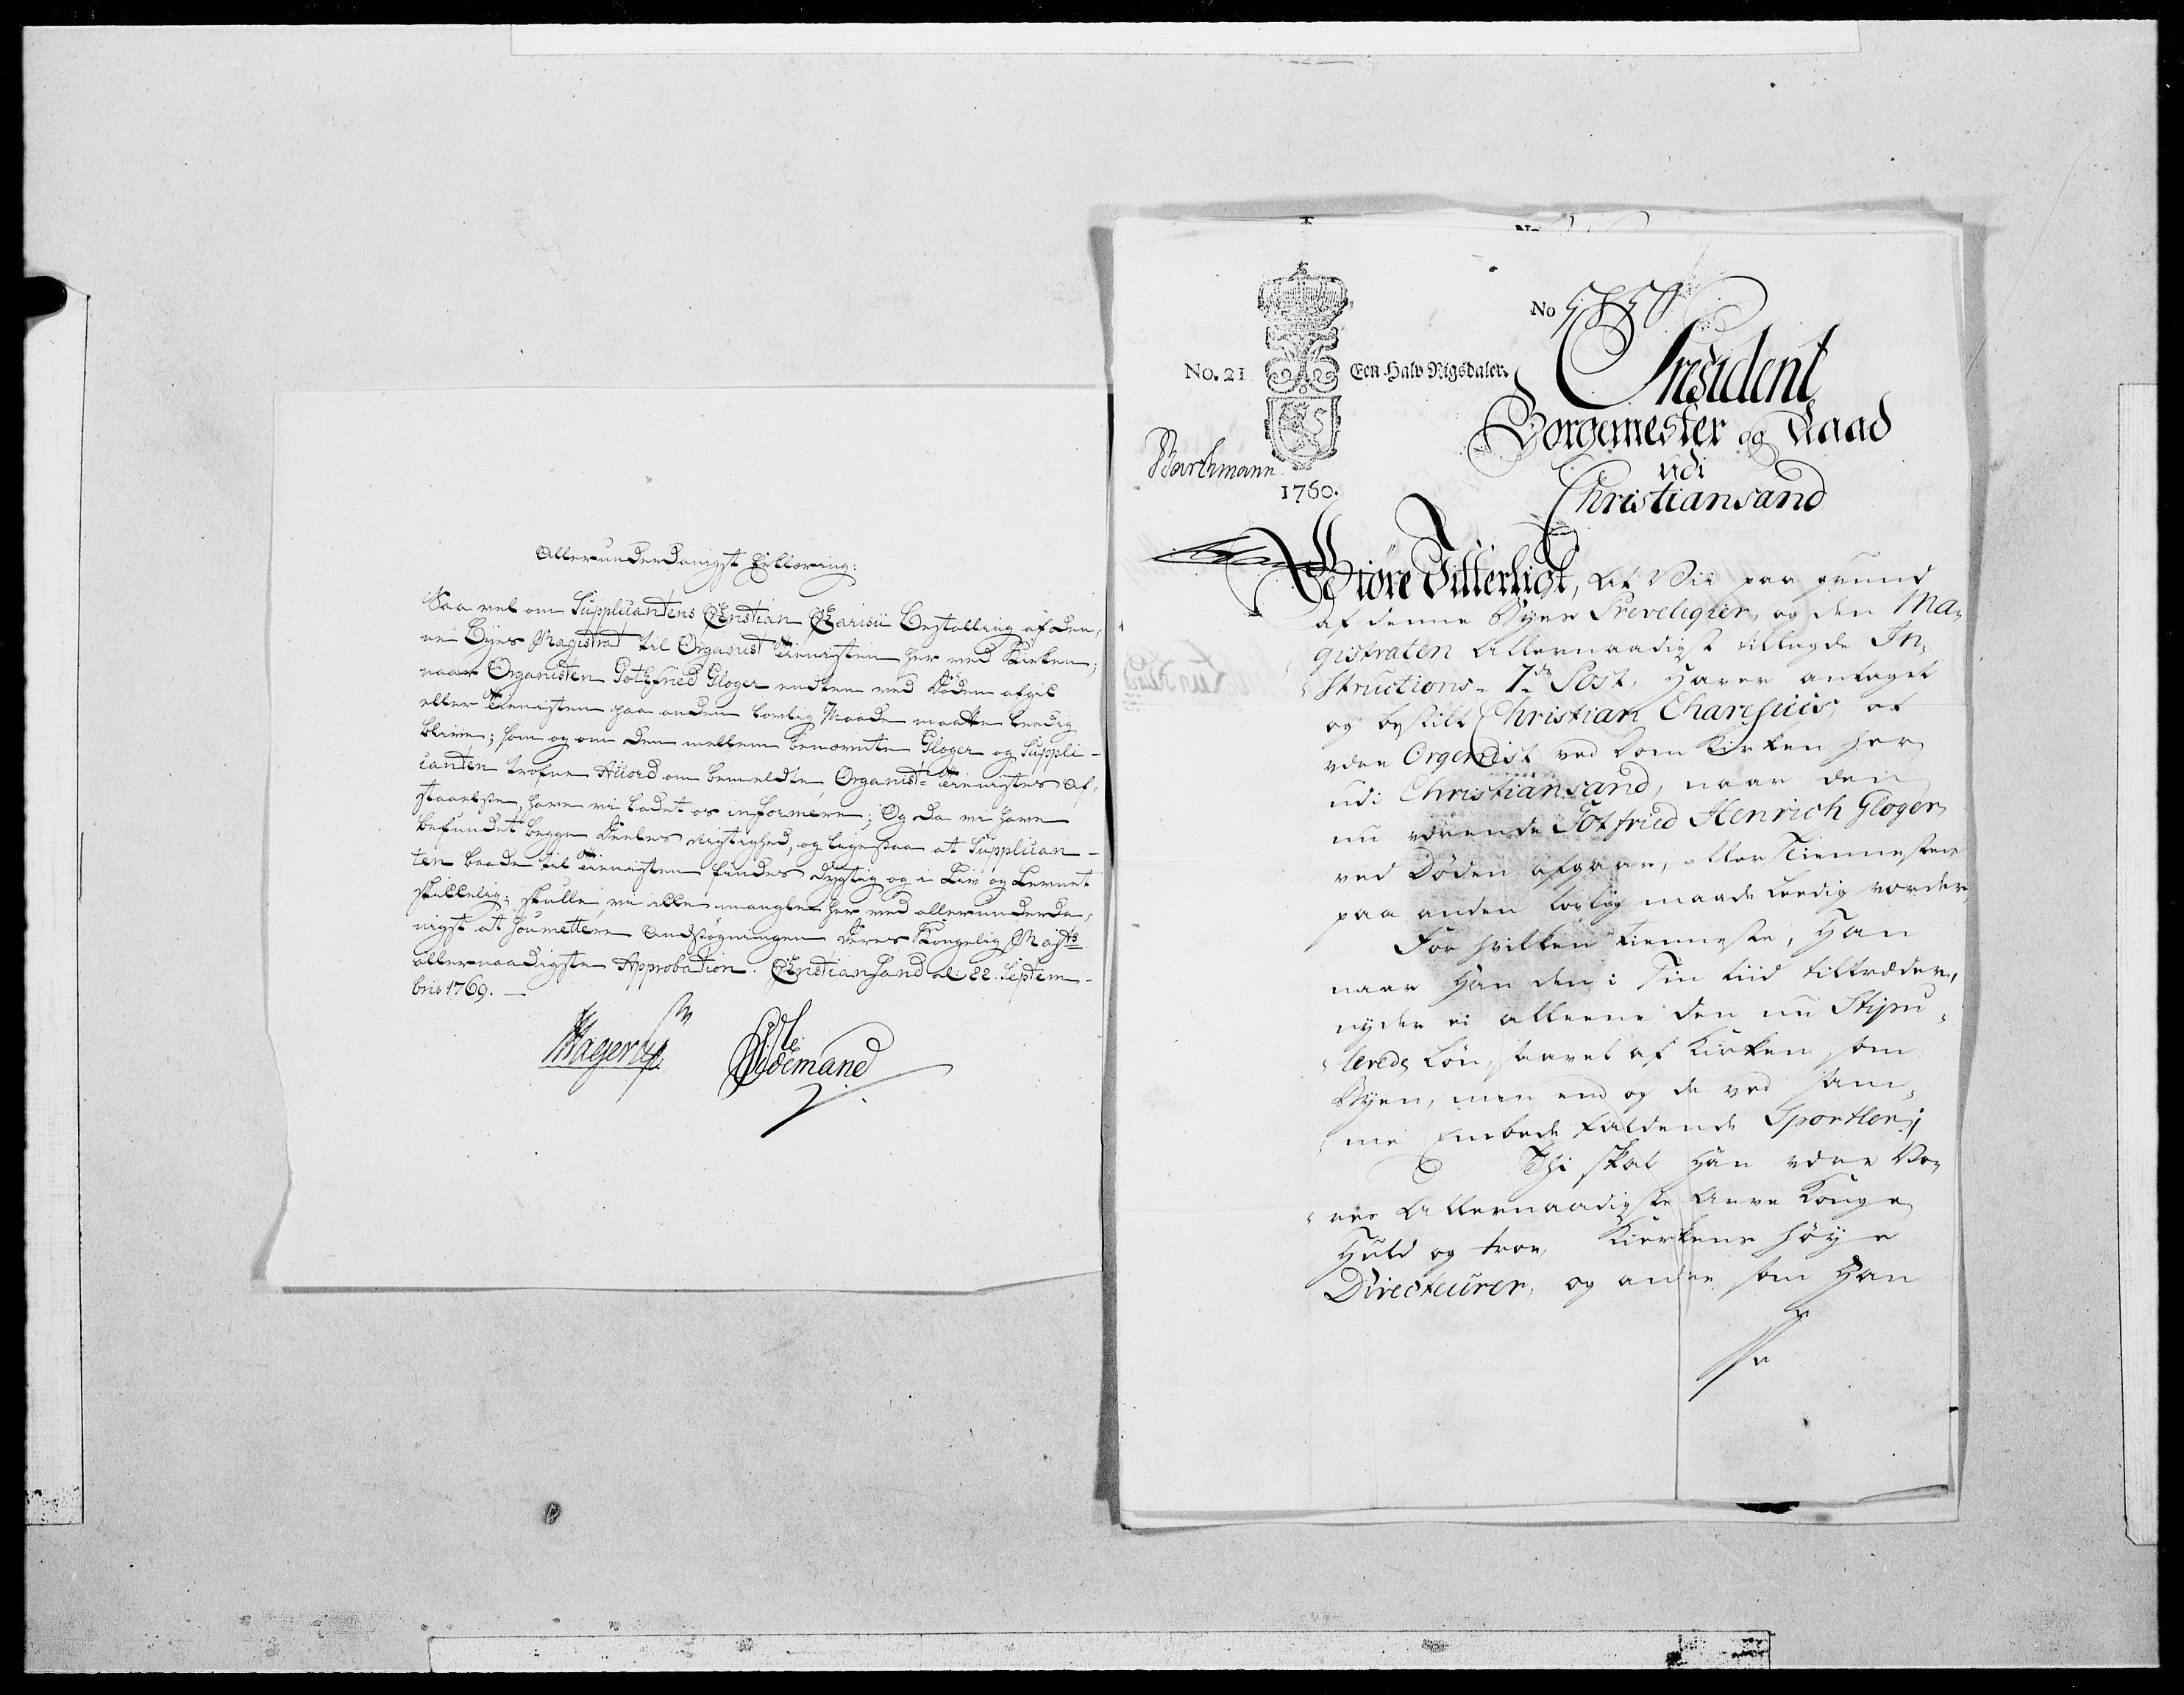 Allerunderdanigst Erklæring:
Saa vel om Supplicantens Christian Charisii Bestalling af den-
ne Byes Magistrat til Organist Tienisten her ved Kirken,
naar Organisten Gothfried Gloger endten ved Døden afgik
eller Tienisten paa anden lovlig Maade maatte leedig
blive; som og om den mellem benævnte Gloger og Suppli-
canten trofne Accord om bemeldte Organist-Tienistes Af-
staaelse, have vi ladet os informere; Og da vi have
befundet begge Deeles Rigtighed, og ligesaa at Supplican-
ten baade til Tienisten findes dygtig og i Liv og Levnet
skikkelig; skulle vi ikke manglet her ved allerunderda-
nigst at soumettere Ansøgningen Deres Kongelig Mayts
allernaadigste Approbation. Christiansand d: 22. Septem-
bris 1769.
Hagerup
Tidemand
No. 21
Een Halv Rigsdaler.
No
Barthmann
1760.
Præsident
Borgemester og Raad
udi
Christiansand
Giøre Vitterligt, At Vii paa grund
af denne Byes Preveligier, og den Ma-
gistraten Allernaadigst tillagde In-
structions-7de Post, Haver antaget
og bestilt Christian Charesiüs, at
være Organist ved Dom Kirken her
udi Christiansand, naar den
nu værende Gotfried Henrich Gloger
ved Døden afgaar, eller Tiennesten
paa anden lovlig maade Leedig vorder,
For hvilken Tienneste, Han
naar Han den i Sin tiid tiltræder,
nyder ei alleene den nu Stipu-
lerede Løn, saavel af Kirken som
Byen, men end og de ved sam-
me Embede faldende Sportler;
Thi skal Han være Vo-
res Allernaadigste Arve Konge
Huld og troe, Kirkens høye
Directeurer, og andre som Han